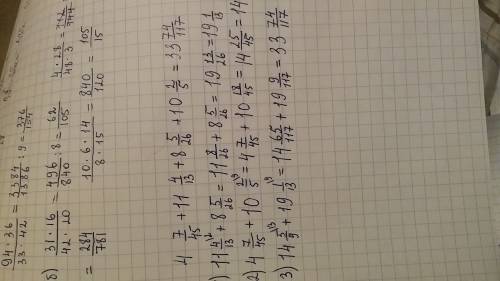 94·36/33·42 = 3384/1386 : 9 = 376/154
б) 31·16/42·20 = 496/840 : 8 = 62/105
4·28/48·3 =
= 284/781
10·6·14/8·15 = 840/120 = 105/15
4 7/45 + 11 4/13 + 8 5/26 + 10 2/5 = 33 74/117
1) 11 4/13 + 8 5/26 = 11 8/26 + 8 5/26 = 19 13/26 = 19 1/13
2) 4 7/45 + 10 2/5 = 4 7/45 + 10 18/45 = 14 25/45 = 14
3) 14 5/9 + 19 1/13 = 14 65/117 + 19 9/117 = 33 74/117